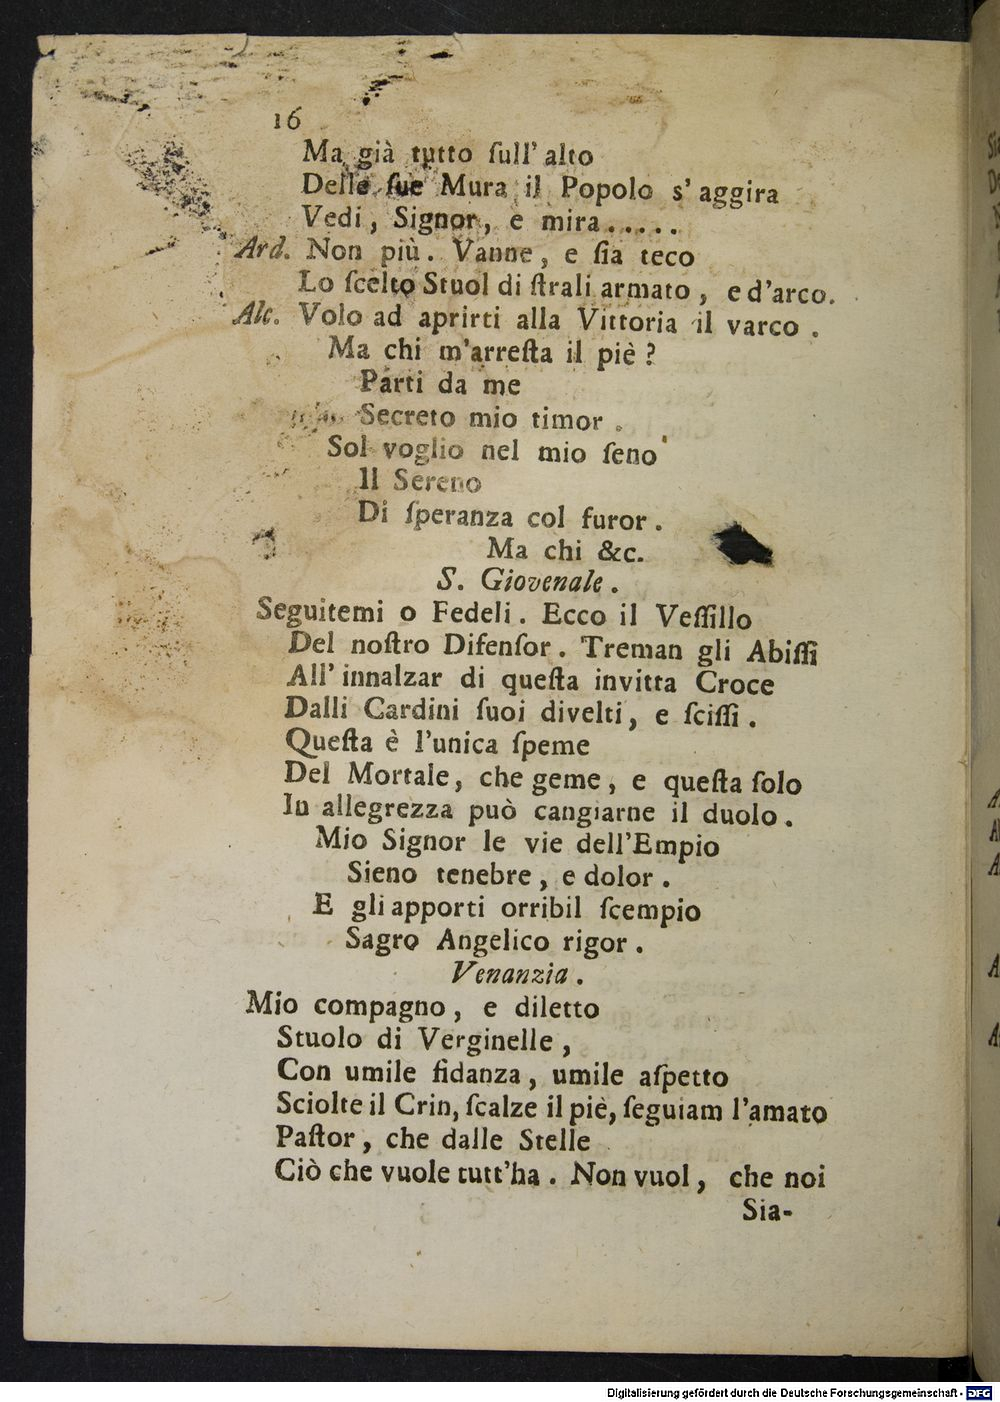 16
Ma già tutto ſull' alto
Delle ſue Mura il Popolo s' aggira
Vedi, Signor, e mira.....
Ard. Non più. Vanne, e ſia teco
Lo ſcelto Stuol di ſtrali armato, e d'arco.
Alc. Volo ad aprirti alla Vittoria il varco.
Ma chi m'arreſta il piè?
Parti da me
Secreto mio timor.
Sol voglio nel mio ſeno
Il Sereno
Di ſperanza col furor.
Ma chi &c.
S. Giovenale.
Seguitemi o Fedeli. Ecco il Veſſillo
Del noſtro Difenſor. Treman gli Abiſſi
All' innalzar di queſta invitta Croce
Dalli Cardini ſuoi divelti, e ſciſſi.
Queſta è l'unica ſpeme
Del Mortale, che geme, e queſta ſolo
In allegrezza può cangiarne il duolo.
Mio Signor le vie dell'Empio
Sieno tenebre, e dolor.
E gli apporti orribil ſcempio
Sagro Angelico rigor.
Venanzia.
Mio compagno, e diletto
Stuolo di Verginelle,
Con umile fidanza, umile aſpetto
Sciolte il Crin, ſcalze il piè, ſeguiam l'amato
Paſtor, che dalle Stelle
Ciò che vuole tutt'ha. Non vuol, che noi
Sia-
Digitalisierung gefördert durch die Deutsche Forschungsgemeinschaft - DFG